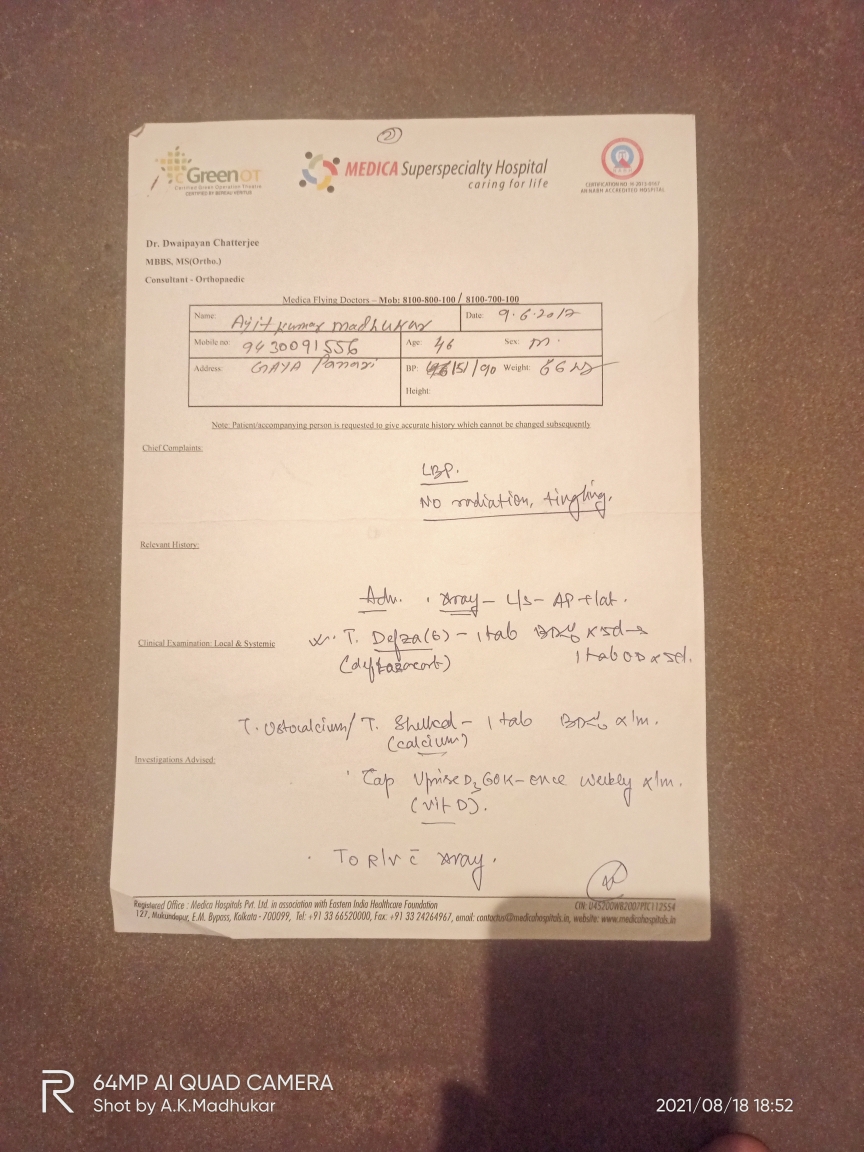 2
GreenOT
Certified Green Operation Theatre
CERTIFIED BY BUREAU VERITAS
MEDICA Superspecialty Hospital
caring for life
AN NABH ACCREDITED HOSPITAL
Dr. Dwaipayan Chatterjee
MBBS, MS(Ortho.)
Consultant - Orthopaedic
Medica Flying Doctors – Mob: 8100-800-100 / 8100-700-100
Name: Ajit kumar madhukar Date: 9.6.2017
Mobile no: 9430091556 Age: 46 Sex: m.
Address: GAYA BP: 151/90 Weight: 66
Height:
Note: Patient/accompanying person is requested to give accurate history which cannot be changed subsequently
Chief Complaints:
LBP.
No radiation, tingling.
Relevant History:
Adv. Xray – L/S – AP + lat.
Clinical Examination: Local & Systemic
T. Defza (6) – 1 tab x 5d →
(deflazacort) 1 tab OD x 5d.
T. Ostocalcium / T. Shelcal – 1 tab x 1m.
(calcium)
Investigations Advised:
Cap Uprise D3 60K – once weekly x 1m.
(Vit D).
To R/v c̄ Xray.
Registered Office : Medica Hospitals Pvt. Ltd. in association with Eastern India Healthcare Foundation CIN: U85200WB2007PTC112554
127, Mukundapur, E.M. Bypass, Kolkata - 700099, Tel: +91 33 66520000, Fax: +91 33 24264967, email: contactus@medicahospitals.in, website: www.medicahospitals.in
R 64MP AI QUAD CAMERA
Shot by A.K.Madhukar 2021/08/18 18:52